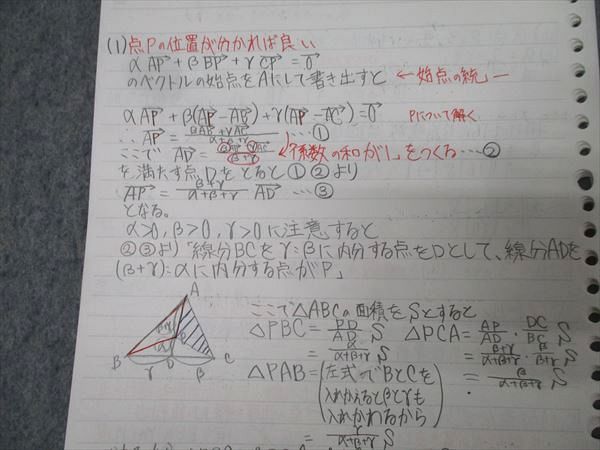 (1) 点Pの位置が分かれば良い
αAP→ + βBP→ + γCP→ = 0→
のベクトルの始点をAにして書き出すと ← 始点の統一
αAP→ + β(AP→ − AB→) + γ(AP→ − AC→) = 0→ Pについて解く
∴ AP→ = (βAB→ + γAC→)/(α+β+γ) …①
ここで AD→ = (βAB→ + γAC→)/(β+γ) ←「係数の和が1」をつくる …②
を満たす点Dをとると①②より
AP→ = (β+γ)/(α+β+γ) AD→ …③
となる。
α>0, β>0, γ>0 に注意すると
②③より「線分BCをγ:βに内分する点をDとして、線分ADを
(β+γ):αに内分する点がP」
A
B γ D β C
β+γ
α
P
ここで△ABCの面積をSとすると
△PBC = PD/AD S △PCA = AP/AD・DC/BC S
= α/(α+β+γ) S = (β+γ)/(α+β+γ)・β/(β+γ) S
△PAB = (左式でBとCを = β/(α+β+γ) S
入れかえるとβとγも
入れかわるから)
= γ/(α+β+γ) S